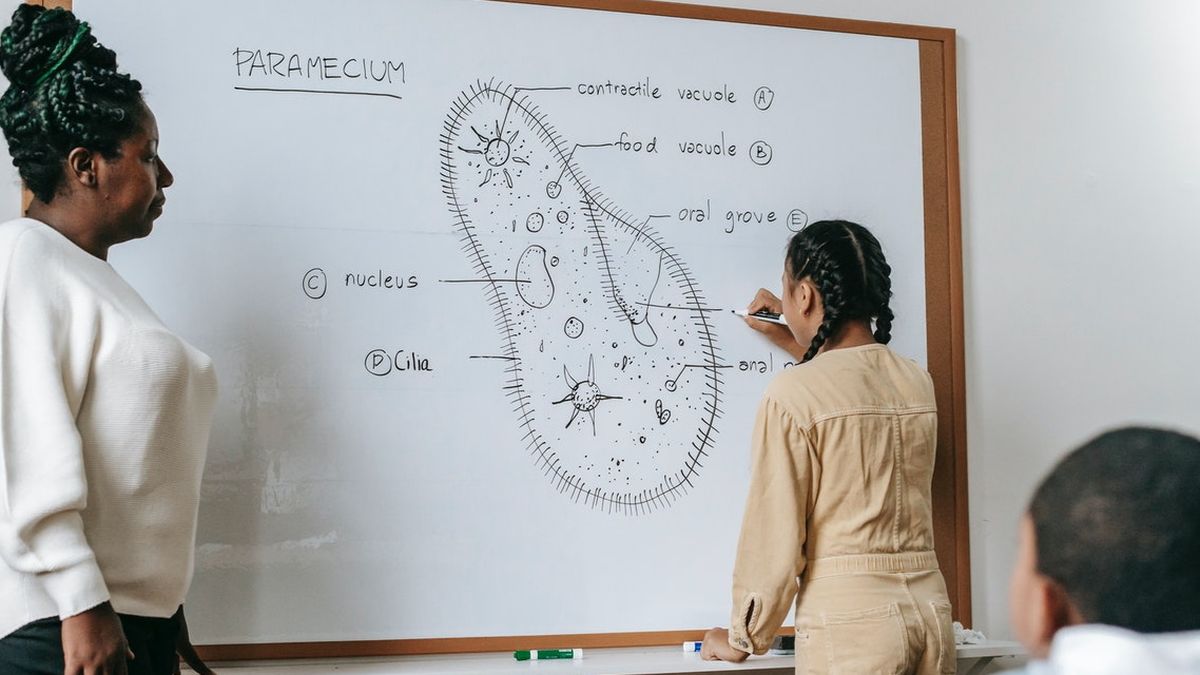 PARAMECIUM
contractile vacuole A
food vacuole B
oral grove E
C nucleus
D Cilia
anal